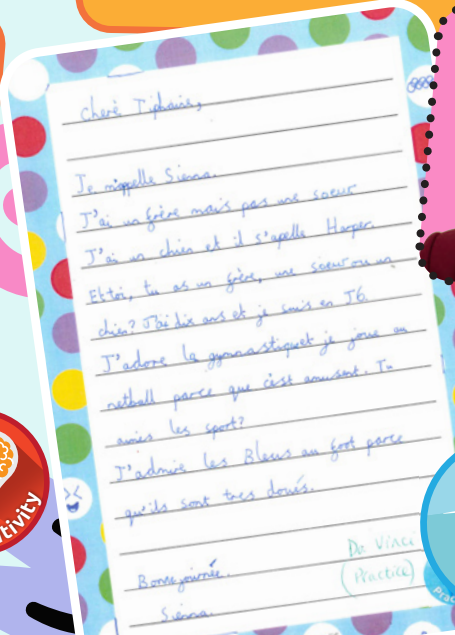 Cheré Tiphaine,
Je m'appelle Sienna.
J'ai un frère mais pas une soeur
J'ai un chien et il s'apelle Harper.
Et toi, tu as un frère, une soeur ou un
chien? J'ai dix ans et je suis en J6.
J'adore la gymnastiquet je joue au
netball parce que c'est amusent. Tu
aimes les sport?
J'admire les Bleus au foot parce
qu'ils sont tres doués.
Bonne journée.
Sienna.
Da Vinci
(Practice)
tivity
Prac